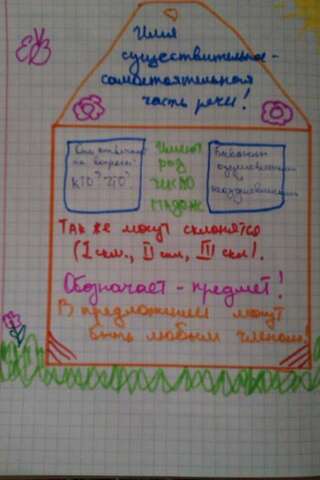 Имя
существительное -
самостоятельная
часть речи!
Они отвечают
на вопросы:
кто? что?
Имеют
род
число
падеж
Бывают
одушевлённым
и
неодушевлённым
Так же могут склонятся
(I скл., II скл, III скл).
Обозначает - предмет!
В предложении могут
быть любым членом!